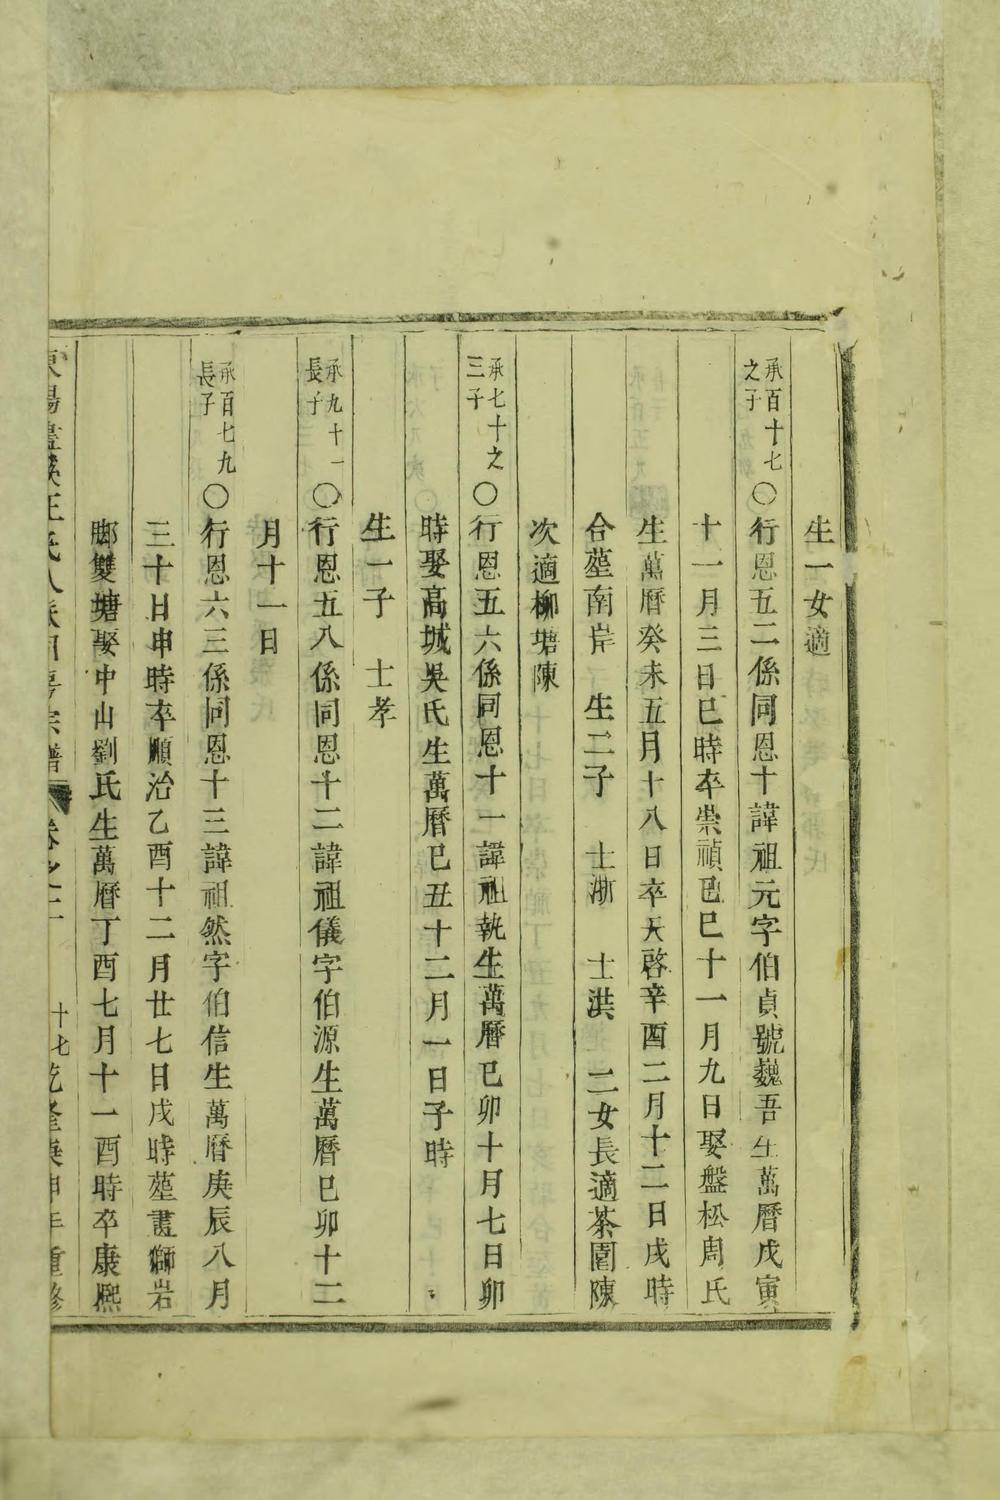 生一女適
承百十七之子〇行恩五二係同恩十諱祖元字伯貞號巍吾生萬曆戊寅
十一月三日巳時卒崇禎己巳十一月九日娶盤松周氏
生萬曆癸未五月十八日卒天啓辛酉二月十二日戌時
合塟南岸 生二子 士淛 士洪 二女長適茶園陳
次適柳塘陳
承七十之三子〇行恩五六係同恩十一諱祖執生萬曆己卯十月七日卯
時娶高城吳氏生萬曆己丑十二月一日子時
生一子 士孝
承九十一長子〇行恩五八係同恩十二諱祖儀字伯源生萬曆己卯十二
月十一日
承百七九長子〇行恩六三係同恩十三諱祖然字伯信生萬曆庚辰八月
三十日申時卒順治乙酉十二月廿七日戌時塟畫獅岩
鄉雙塘娶中山劉氏生萬曆丁酉七月十一酉時卒康熙
王氏 宗譜 卷之二 十七 乾隆庚申年重修